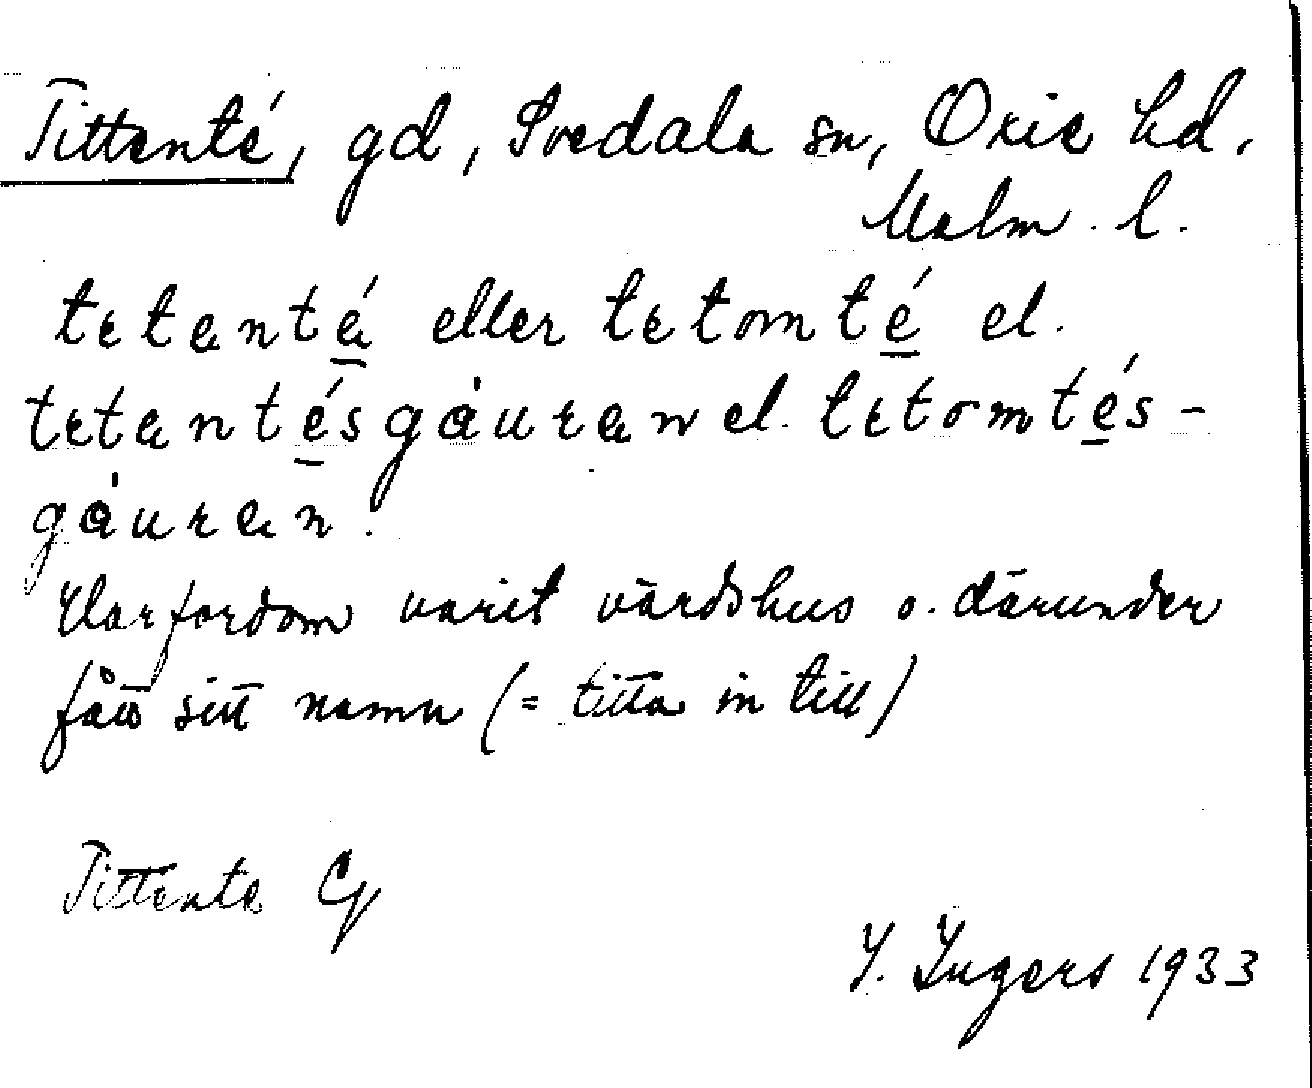 Tittenté, gd, Svedala sn, Oxie hd.
Malm. l.
tetanté eller tetomté el.
tetantésgáuran el. tetomtés-
gáuran.
Har fordom varit värdshus o. därunder
fått sitt namn (= titta in till)
Tittente Cg
I. Ingers 1933